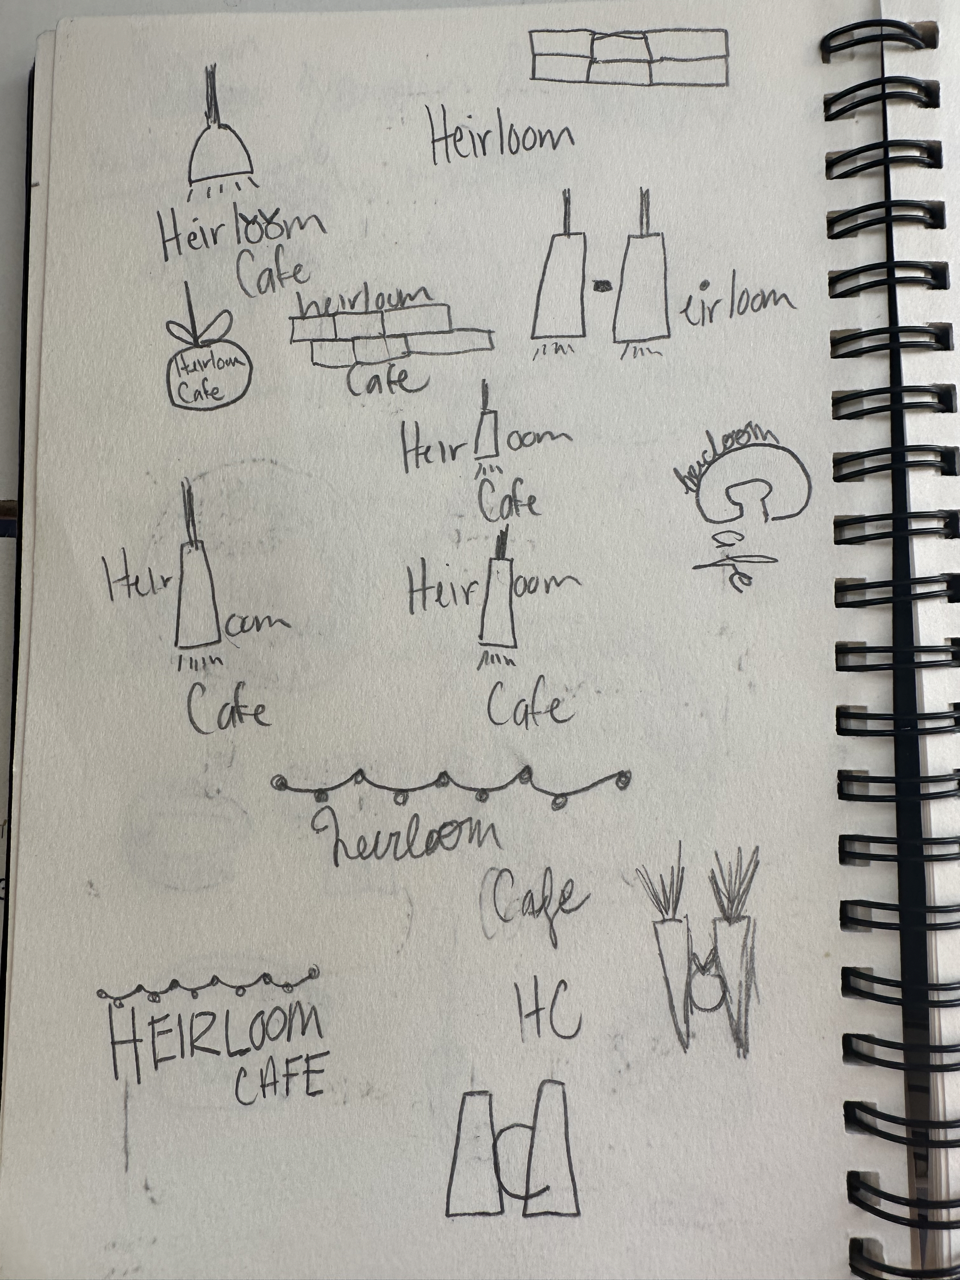 Heirloom
Heirloom
Cafe
eirloom
heirloom
Cafe
Heirloom
Cafe
Heir oom
Cafe
heirloom
Cafe
Heir oom
Cafe
Heir oom
Cafe
heirloom
Cafe
HC
HEIRLOOM
CAFE
C